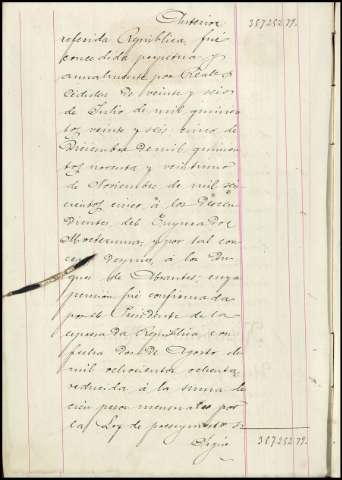 Anterior 357252.79.
referida República, fué
concedida perpetua y
anualmente por Reales
Cédulas de veinte y seis
de Julio de mil quinien
tos veinte y seis, cinco de
Diciembre de mil quinien
tos noventa y veintiuno
de Noviembre de mil seis
cientos cinco á los Descen
dientes del Emperador
Moctezuma, y por tal con
cepto á los Du
ques de Abrantes; cuya
pensión fué confirmada
por el Presidente de la
expresada República, con
fecha dos de Agosto de
mil ochocientos ochenta,
reducida á la suma de
cien pesos mensuales por
la Ley de presupuestos
Sigue 357252.79.